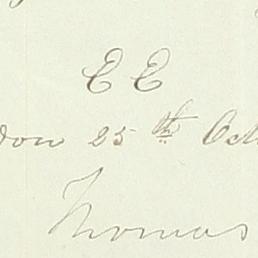 E E
don 25th Oct
Thomas